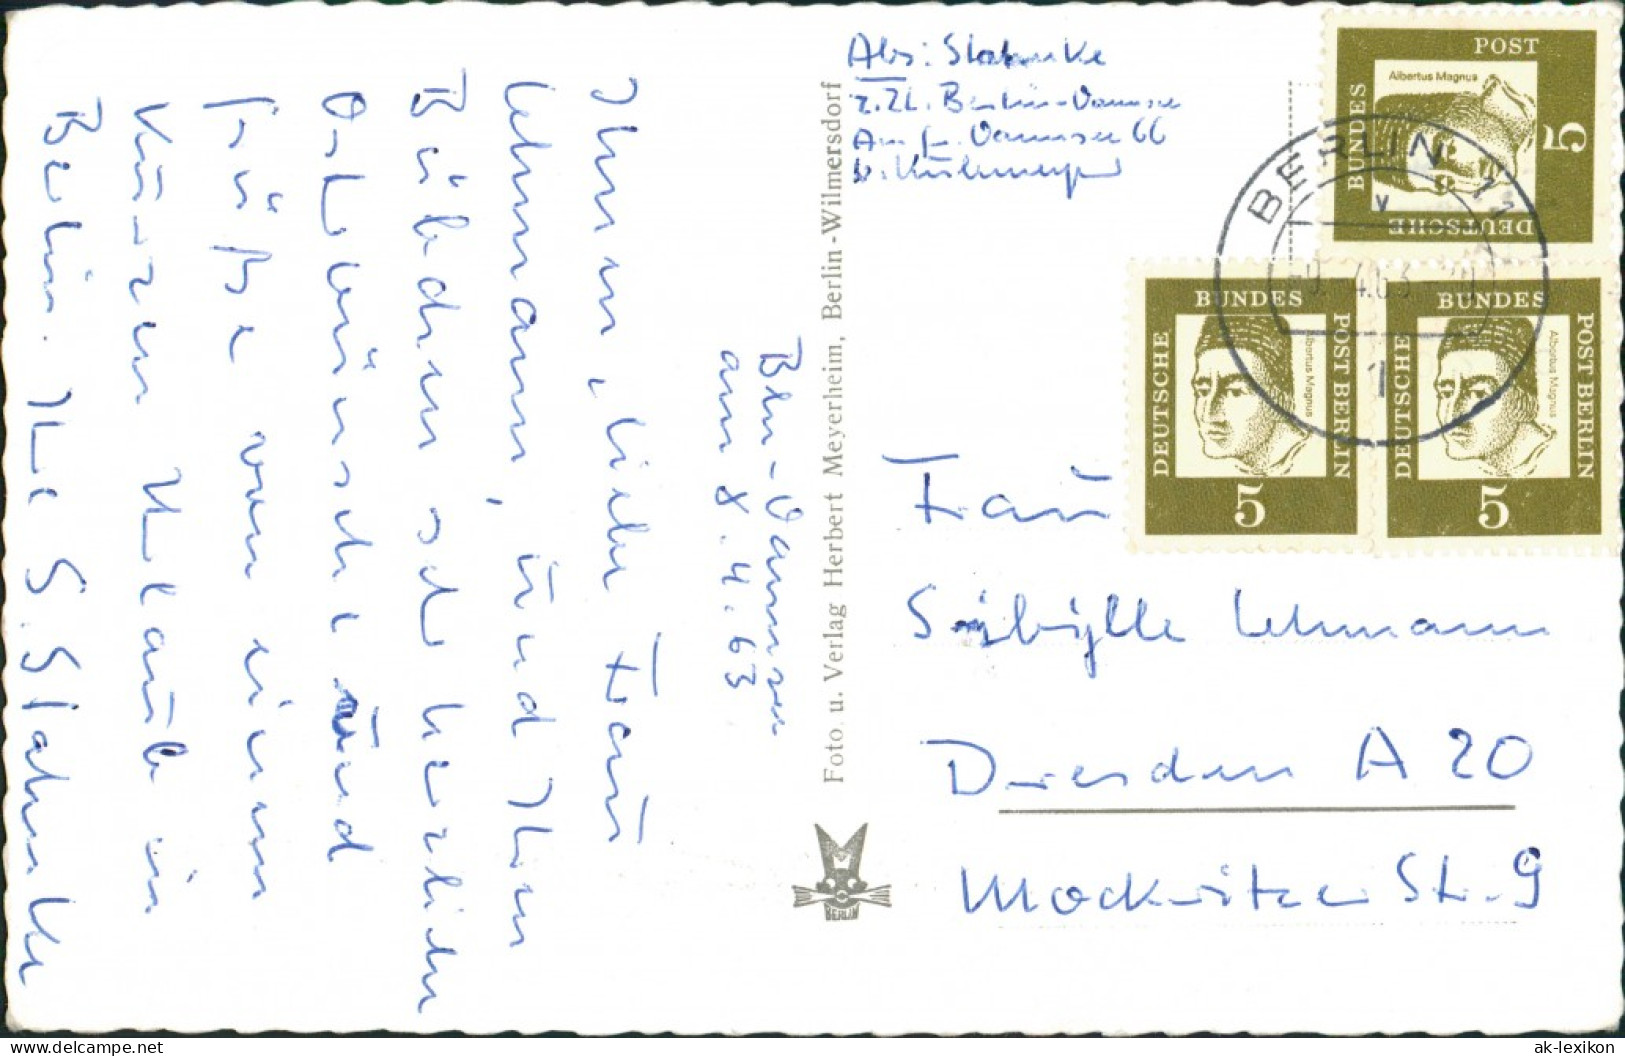 Abs: Stahnke
z.Zt. Berlin-Wannsee
Am gr. Wannsee 66
b. Kühlmeyer
Bln-Wannsee
am 8.4.63
Ihnen, liebe Frau
Lehmann, und Ihren
Bübchen sehr herzlichen
Osterwünsche und
Grüße von einem
kurzen Urlaub in
Berlin. Ihr S. Stahnke
Foto u. Verlag Herbert Meyerheim, Berlin-Wilmersdorf
BERLIN
Frau
Sibylle Lehmann
Dresden A 20
Mockritzer Str. 9
DEUTSCHE BUNDESPOST
Albertus Magnus
5
DEUTSCHE BUNDESPOST BERLIN
Albertus Magnus
5
DEUTSCHE BUNDESPOST BERLIN
Albertus Magnus
5
BERLIN 11
v
-9. 4.63
1
www.delcampe.net
ak-lexikon